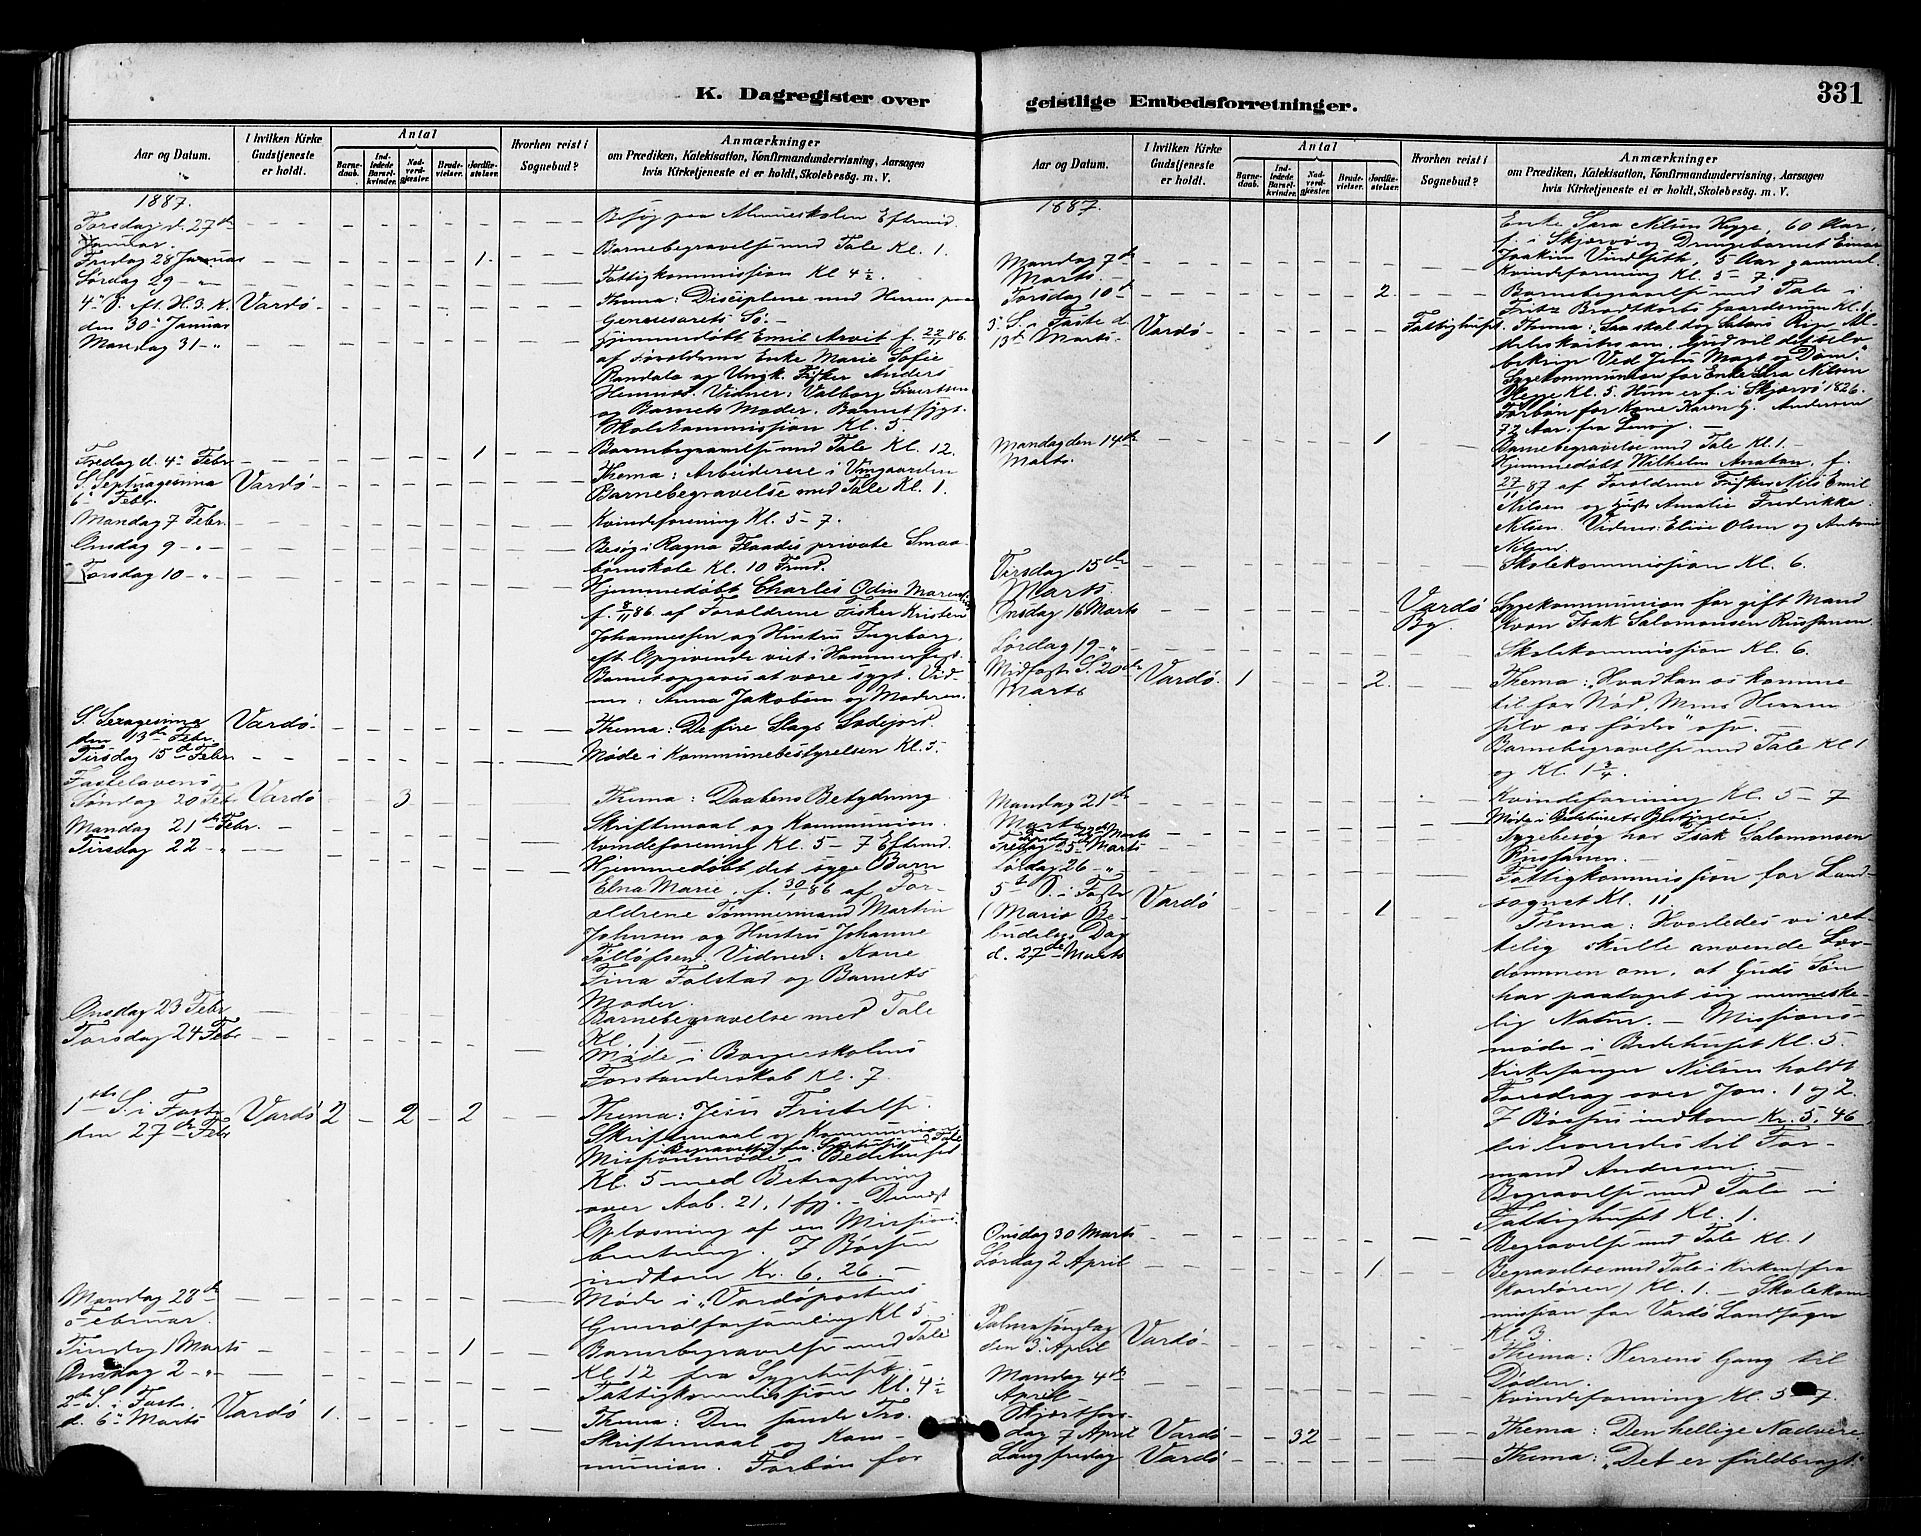 K. Dagregister over
Aar og Datum.
I hvilken Kirke Gudstjeneste er holdt.
Antal
Barnedaab.
Indledede Barselkvinder.
Nadverdgjester.
Brudevielser.
Jordfæstelser.
Hvorhen reist i Sognebud?
Anmærkninger
om Prædiken, Katekisation, Konfirmandundervisning, Aarsagen
hvis Kirketjeneste ei er holdt, Skolebesøg. m. V.
1887.
Torsdag d. 27de Januar. Besøg paa Almueskolen Eftmid.
Fredag 28 Januar 1. Barnebegravelse med Tale Kl. 1.
Lørdag 29 - " Fattigkommission Kl 4 1/2.
4de S. eft. H. 3. K. den 30 Januar Vardö Thema: Disciplene med Herren paa
Genesarets Sö.
Mandag 31 - " Hjemmedøbt Emil Arvit f. 27/11 86.
af Forældrene Enke Marie Sofie
Randala og Ungk. Fisker Anders
Hemnes. Vidner: Valborg Sivertsen
og Barnets Moder. Barnet sygt.
Skolekommission Kl. 5.
Fredag d. 4de Febr 1 Barnebegravelse med Tale Kl. 12.
S. Septuagesima 6 Febr. Vardö Thema: Arbeiderne i Viingaarden
Barnebegravelse med Tale Kl. 1.
Mandag 7 Febr. Kvindeforening Kl. 5-7.
Onsdag 9 - " Besøg i Ragna Flaadis private Smaa-
børnskole Kl. 10 Frmd.
Torsdag 10 - " Hjemmedøbt Charles Odin Marensius
f. 8/11 86 af Forældrene Fisker Kristen
Johannessen og Hustru Ingeborg,
eft Opgivende viet i Hammerfest.
Barnet opgaves at være sygt. Vid-
ner: Anna Jakobsen og Moderen.
S. Sexagesima den 13de Febr. Vardö Thema: De fire Slags Sædejord.
Tirsdag 15de Febr Møde i Kommunebestyrelsen Kl. 5.
Fastelavens Søndag 20 Feb Vardö 3 Thema: Daabens Betydning
Skriftemaal og Kommunion.
Mandag 21de Febr. Kvindeforening Kl. 5-7 Eftmd.
Tirsdag 22 - " Hjemmedøbt det syge Barn
Elna Marie, f. 30/ 86 af For-
ældrene Tømmermand Martin
Johnsen og Hustru Johanne
Tølløfsen. Vidner: Kone
Fina Falstad og Barnets
Moder.
Onsdag 23 Febr Barnebegravelse med Tale
Kl. 1
Torsdag 24 Febr Møde i Borgerskolens
Forstanderskab Kl. 7
1ste S. i Faste den 27de Feb Vardö 2 2 2 Thema: Jesu Fristelse.
Skriftemaal og Kommunion
Begravelse fra Sygehuset m Tale
Missionsmøde i Bedehuset
Kl. 5 med Betragtning
over Aab. 21, 1 fgg. - Dernæst
Oplæsning af en Missions-
beretning. I Børsen
indkom Kr. 6, 26. -
Mandag 28de Februar. Møde i "Vardöpostens
Generalforsamling Kl 5.
Tirsdag 1 Marts 1 Barnebegravelse med Tale
Kl 12 fra Sygehuset. -
Onsdag 2 - " Fattigkommission Kl. 4 1/2
2de S. i Faste d. 6 Marts Vardö 1. Thema: Den sande Tro.
Skriftemaal og Kom-
munion. Forbøn for
geistlige Embedsforretninger.
331
Aar og Datum.
I hvilken Kirke Gudstjeneste er holdt.
Antal
Barnedaab.
Indledede Barselkvinder.
Nadverdgjester.
Brudevielser.
Jordfæstelser.
Hvorhen reist i Sognebud?
Anmærkninger
om Prædiken, Katekisation, Konfirmandundervisning, Aarsagen
hvis Kirketjeneste ei er holdt, Skolebesøg. m. V.
1887.
Enke Sara Nilsen Hegge, 60 Aar,
f. i Skjervö og Drengebarnet Einar
Joakim Vindseth, 5 Aar gammel.
Mandag 7de Marts Kvindeforening Kl. 5-7.
Torsdag 10de 2. Barnebegravelse med Tale i
Fritz Brodtkorbs Gaardsrum Kl. 1.
3 S. i Faste d. 13de Marts Vardö Fattighuset Thema: Saa skal dog Satans Rige
Gud vil det selv
bekrige Ved Jesu Magt og Dom".
Sygekommunion for Enke Sara Nilsen
Hegge Kl. 5. Hun er f. i Skjervö 1826.
Forbön for Kone Karen G. Andersen
72 Aar. fra
Mandag den 14de Marts. 1 Barnebegravelse med Tale Kl. 1. -
Hjemmedøbt Wilhelm Anatan, f.
27/11 87 af Forældrene Fisker Nils Emil
Nilsen og Hust. Amalie Fredrikke
Nilsen. Vidner: Elise Olsen og Antonie
Nilsen.
Tirsdag 15de Marts. Skolekommission Kl. 6.
Onsdag 16 Marts Vardö By. Sygekommunion for gift Mand
Kvæn Isak Salomonsen Russanen
Lørdag 19 - " Skolekommission Kl. 6.
Midfaste S. 20de Marts Vardö. 1 2. Thema: "Hvad kan os komme
til for Nød, Mens Herren
selv os føder" osv.
Barnebegravelse med Tale Kl 1
og Kl. 1 3/4.
Mandag 21de Marts Kvindeforening Kl. 5-7
Tirsdag 22de Marts Møde i Bedehusets Bestyrelse.
Fredag 25de Marts Sygebesøg hos Isak Salomonsen
Russanen. -
Lørdag 26 - " Fattigkommission for Land-
sognet Kl. 11.
5te S. i Faste (Mariæ Be-budelses Dag d. 27de Marts Vardö 1 Thema: Hvorledes vi ret-
telig skulle anvende Lær-
dommen om, at Guds Søn
har paataget sig menneske-
lig Natur. - Missions-
møde i Bedehuset Kl. 5.
Kirkesanger Nilsen holdt
Foredrag over Jon. 1 og 2.
I Børsen indkom Kr. 5, 46.
der leveredes til For-
mand Andersen. -
Begravelse med Tale i
Fattighuset Kl. 1.
Onsdag 30 Marts Begravelse med Tale Kl. 1
Lørdag 2 April 1. Begravelse med Tale i Kirken (fra
Nordøren) Kl. 1. - Skolekom-
mission for Vardö Landsogn
Kl. 3.
Palmesøndag den 3 April Vardö Thema: Herrens Gang til
Døden.
Mandag 4de April Kvindeforening Kl. 5-7.
Skjærtorsdag 7 April Vardö 32 Thema: Den hellige Nadvere
Langfredag Vardö Thema: "Det er fuldbragt."